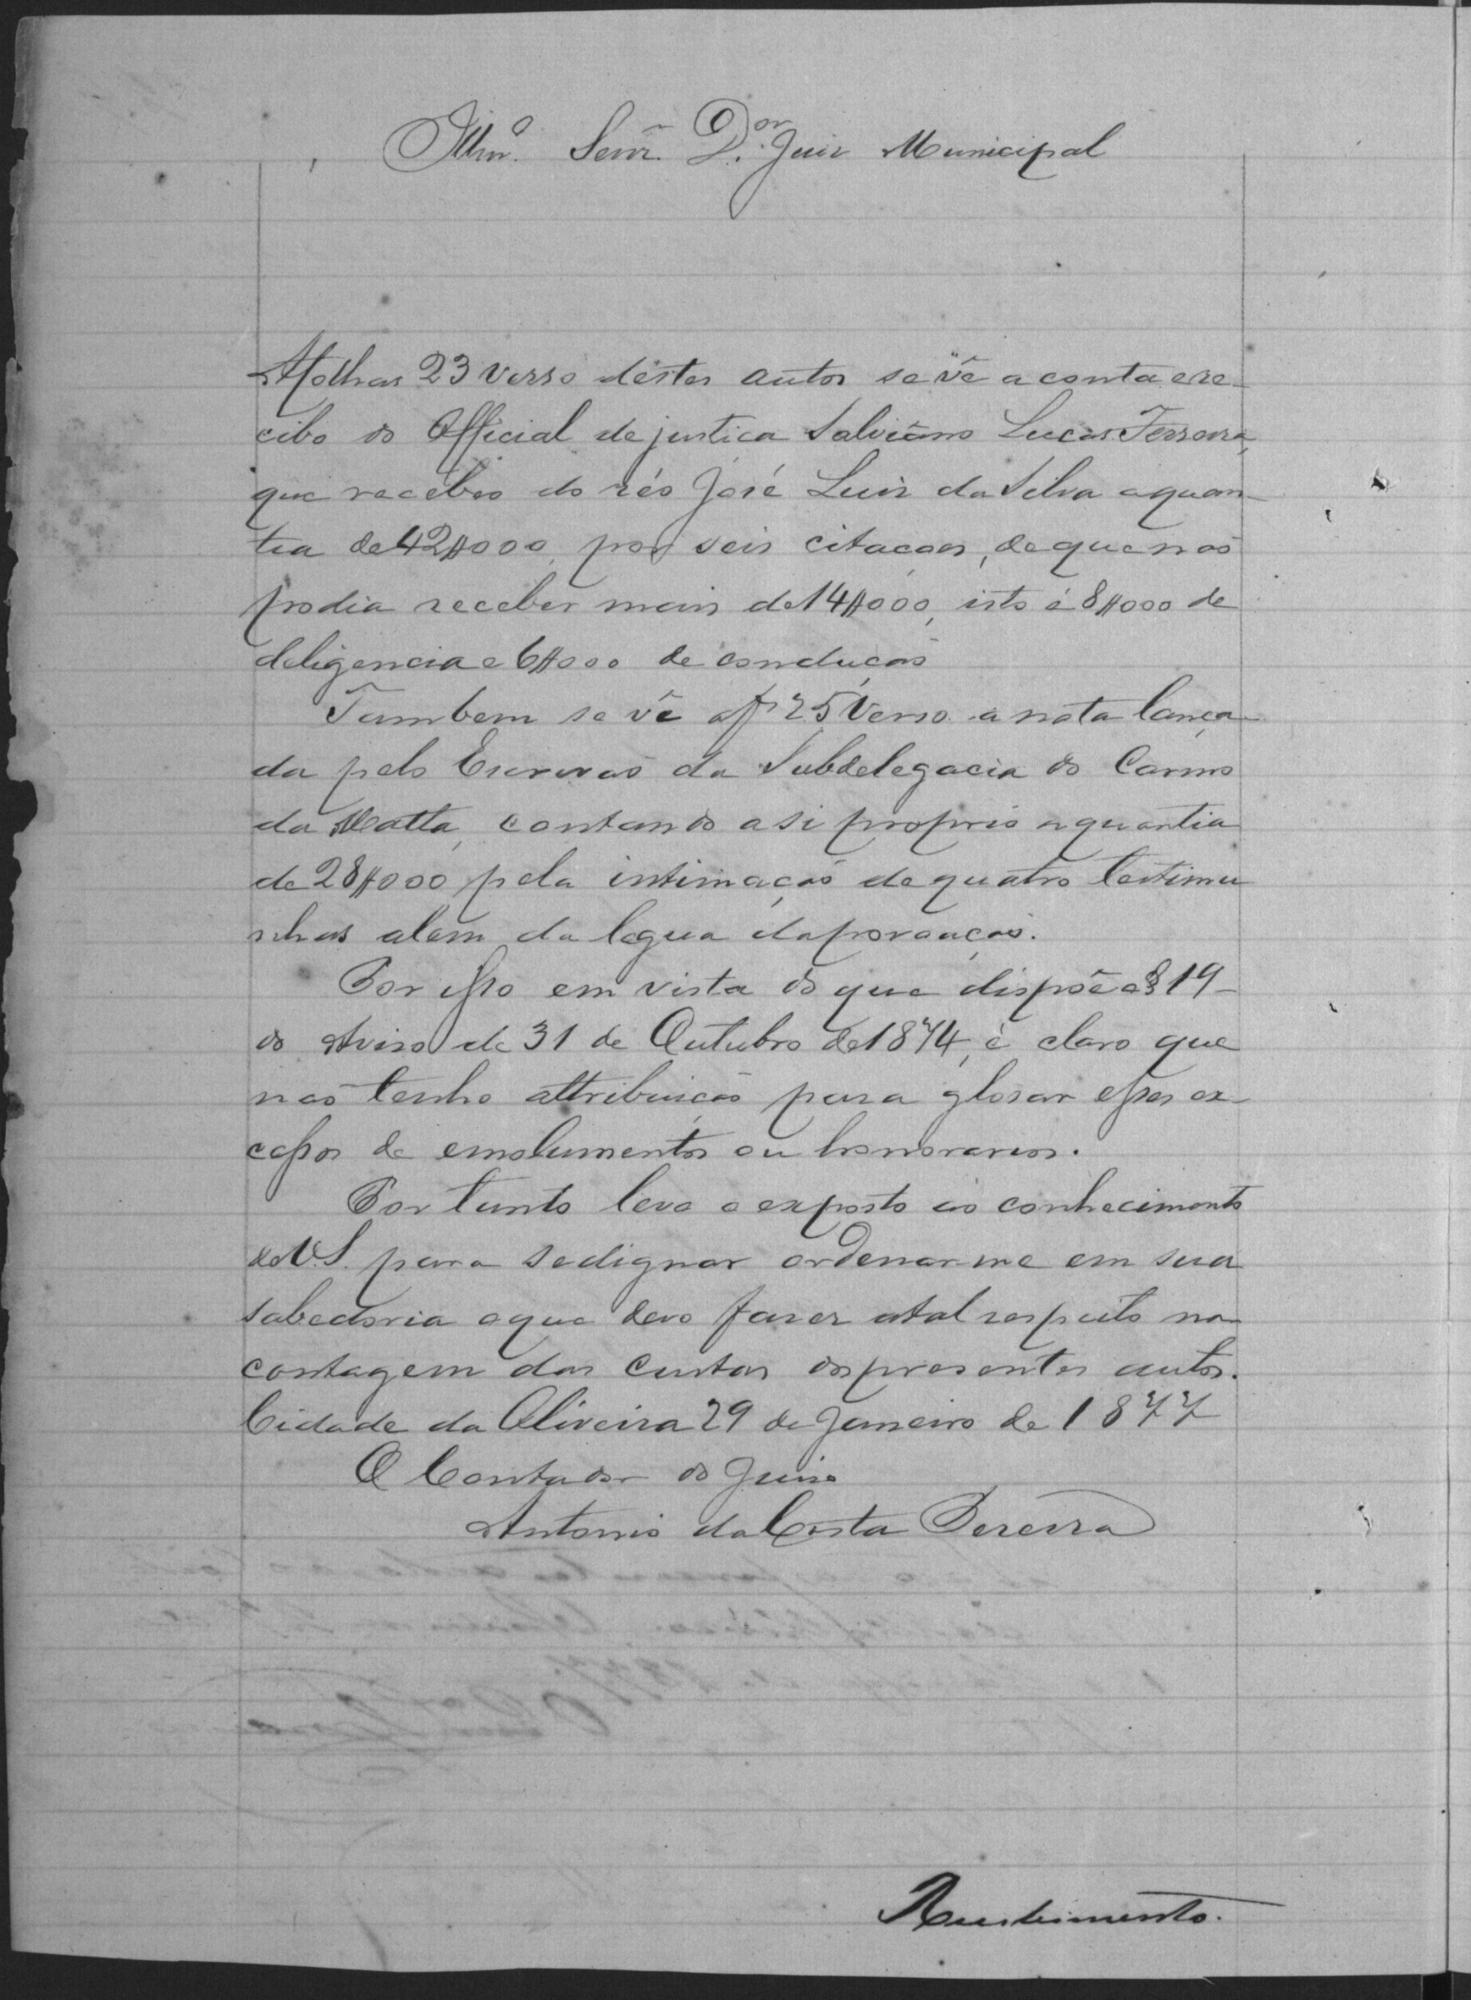 Illmº. Senr. Dor. Juiz Municipal
Afolhas 23 verso déstes autos se vê a conta e re-
cibo do Official de justica Salviano Lucas Ferreira,
que recebeo do réo José Luis da Silva a quan-
tia de 42$000, por seis citaçoes, de que não
podia receber mais de 14$000, isto é 8$000 de
deligencia e 6$000 de conducção
Tambem se vê af 25 Verso a nota lança-
da pelo Escrivão da Subdelegacia do Carmo
da Matta, contando a si proprio a quantia
de 28$000 pela intimação de quatro testimu
nhas alem da legua
Por isso em vista do que dispõe o § 19-
do Aviso de 31 de Outubro de 1874, é claro que
não tenho attribuição para glosar esses ex-
cessos de emolumentos ou honorarios.
Por tanto levo o exposto ao conhecimento
de V.S. para se dignar ordenar me em sua
sabedoria o que devo faser a tal respeito na
contagem das custas dos presentes autos.
Cidade da Oliveira 29 de Janeiro de 1877
O Contador do Juiso
Antonio da Costa Pereira
Recebimento.